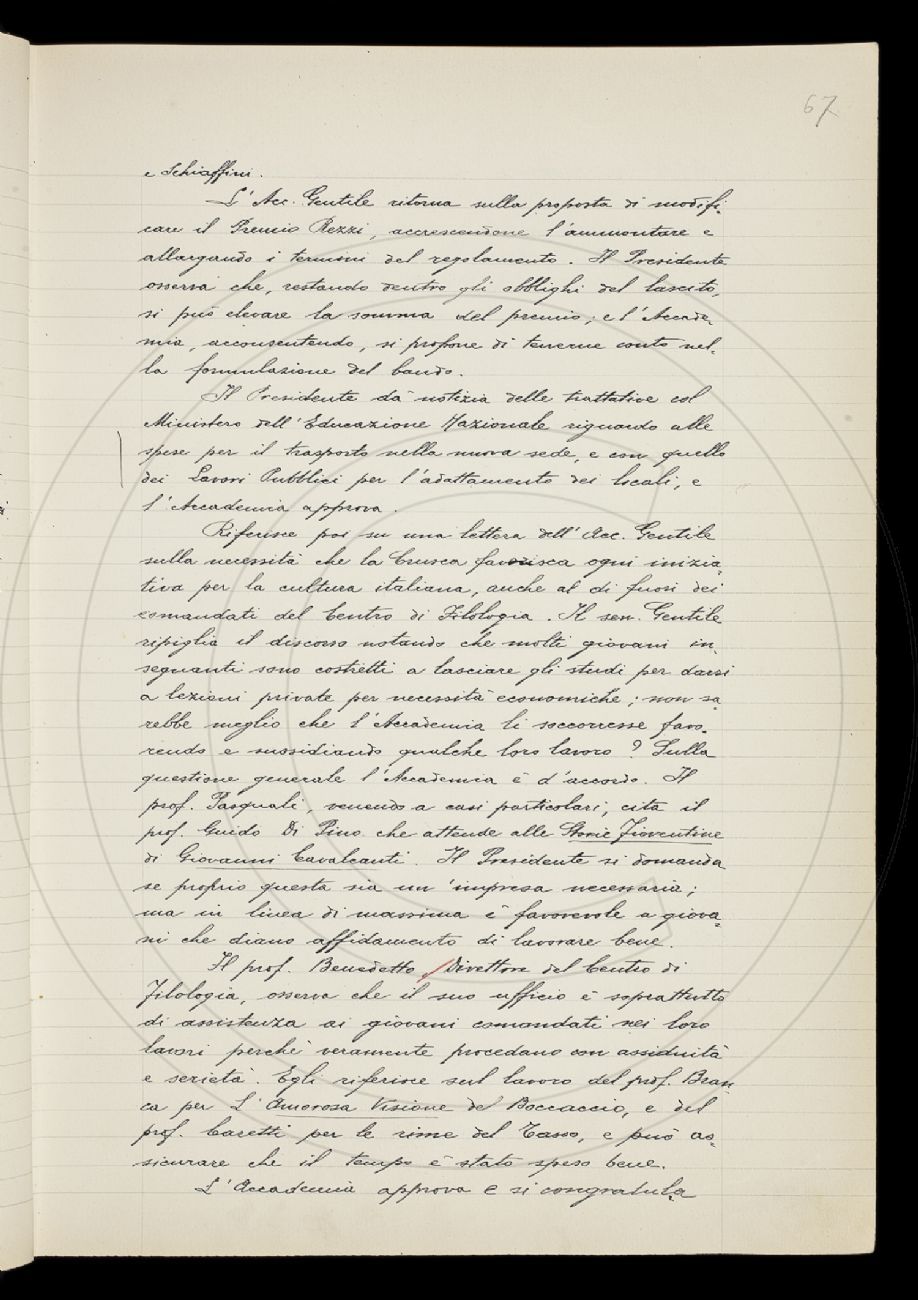 67
e Schiaffini.
L'Acc. Gentile ritorna sulla proposta di modifi-
care il Premio Rezzi, accrescendone l'ammontare e
allargando i termini del regolamento. Il Presidente
osserva che, restando dentro gli obblighi del lascito,
si può elevare la somma del premio; e l'Accade-
mia, acconsentendo, si propone di tenerne conto nel-
la formulazione del bando.
Il Presidente dà notizia delle trattative col
Ministero dell'Educazione Nazionale riguardo alle
spese per il trasporto nella nuova sede, e con quello
dei Lavori Pubblici per l'adattamento dei locali, e
l'Accademia approva.
Riferisce poi su una lettera dell'Acc. Gentile
sulla necessità che la Crusca favorisca ogni inizia-
tiva per la cultura italiana, anche al di fuori dei
comandati del Centro di Filologia. Il sen. Gentile
ripiglia il discorso notando che molti giovani in-
segnanti sono costretti a lasciare gli studi per darsi
a lezioni private per necessità economiche; non sa-
rebbe meglio che l'Accademia li soccorresse favo-
rendo e sussidiando qualche loro lavoro? Sulla
questione generale l'Accademia è d'accordo. Il
prof. Pasquali, venendo a casi particolari, cita il
prof. Guido Di Pino che attende alle Storie Fiorentine
di Giovanni Cavalcanti. Il Presidente si domanda
se proprio questa sia un'impresa necessaria;
ma in linea di massima è favorevole a giova-
ni che diano affidamento di lavorare bene.
Il prof. Benedetto, Direttore del Centro di
Filologia, osserva che il suo ufficio è soprattutto
di assistenza ai giovani comandati nei loro
lavori perché veramente procedano con assiduità
e serietà. Egli riferisce sul lavoro del prof. Bran-
ca per L'Amorosa Visione del Boccaccio, e del
prof. Caretti per le rime del Tasso, e può as-
sicurare che il tempo è stato speso bene.
L'Accademia approva e si congratula